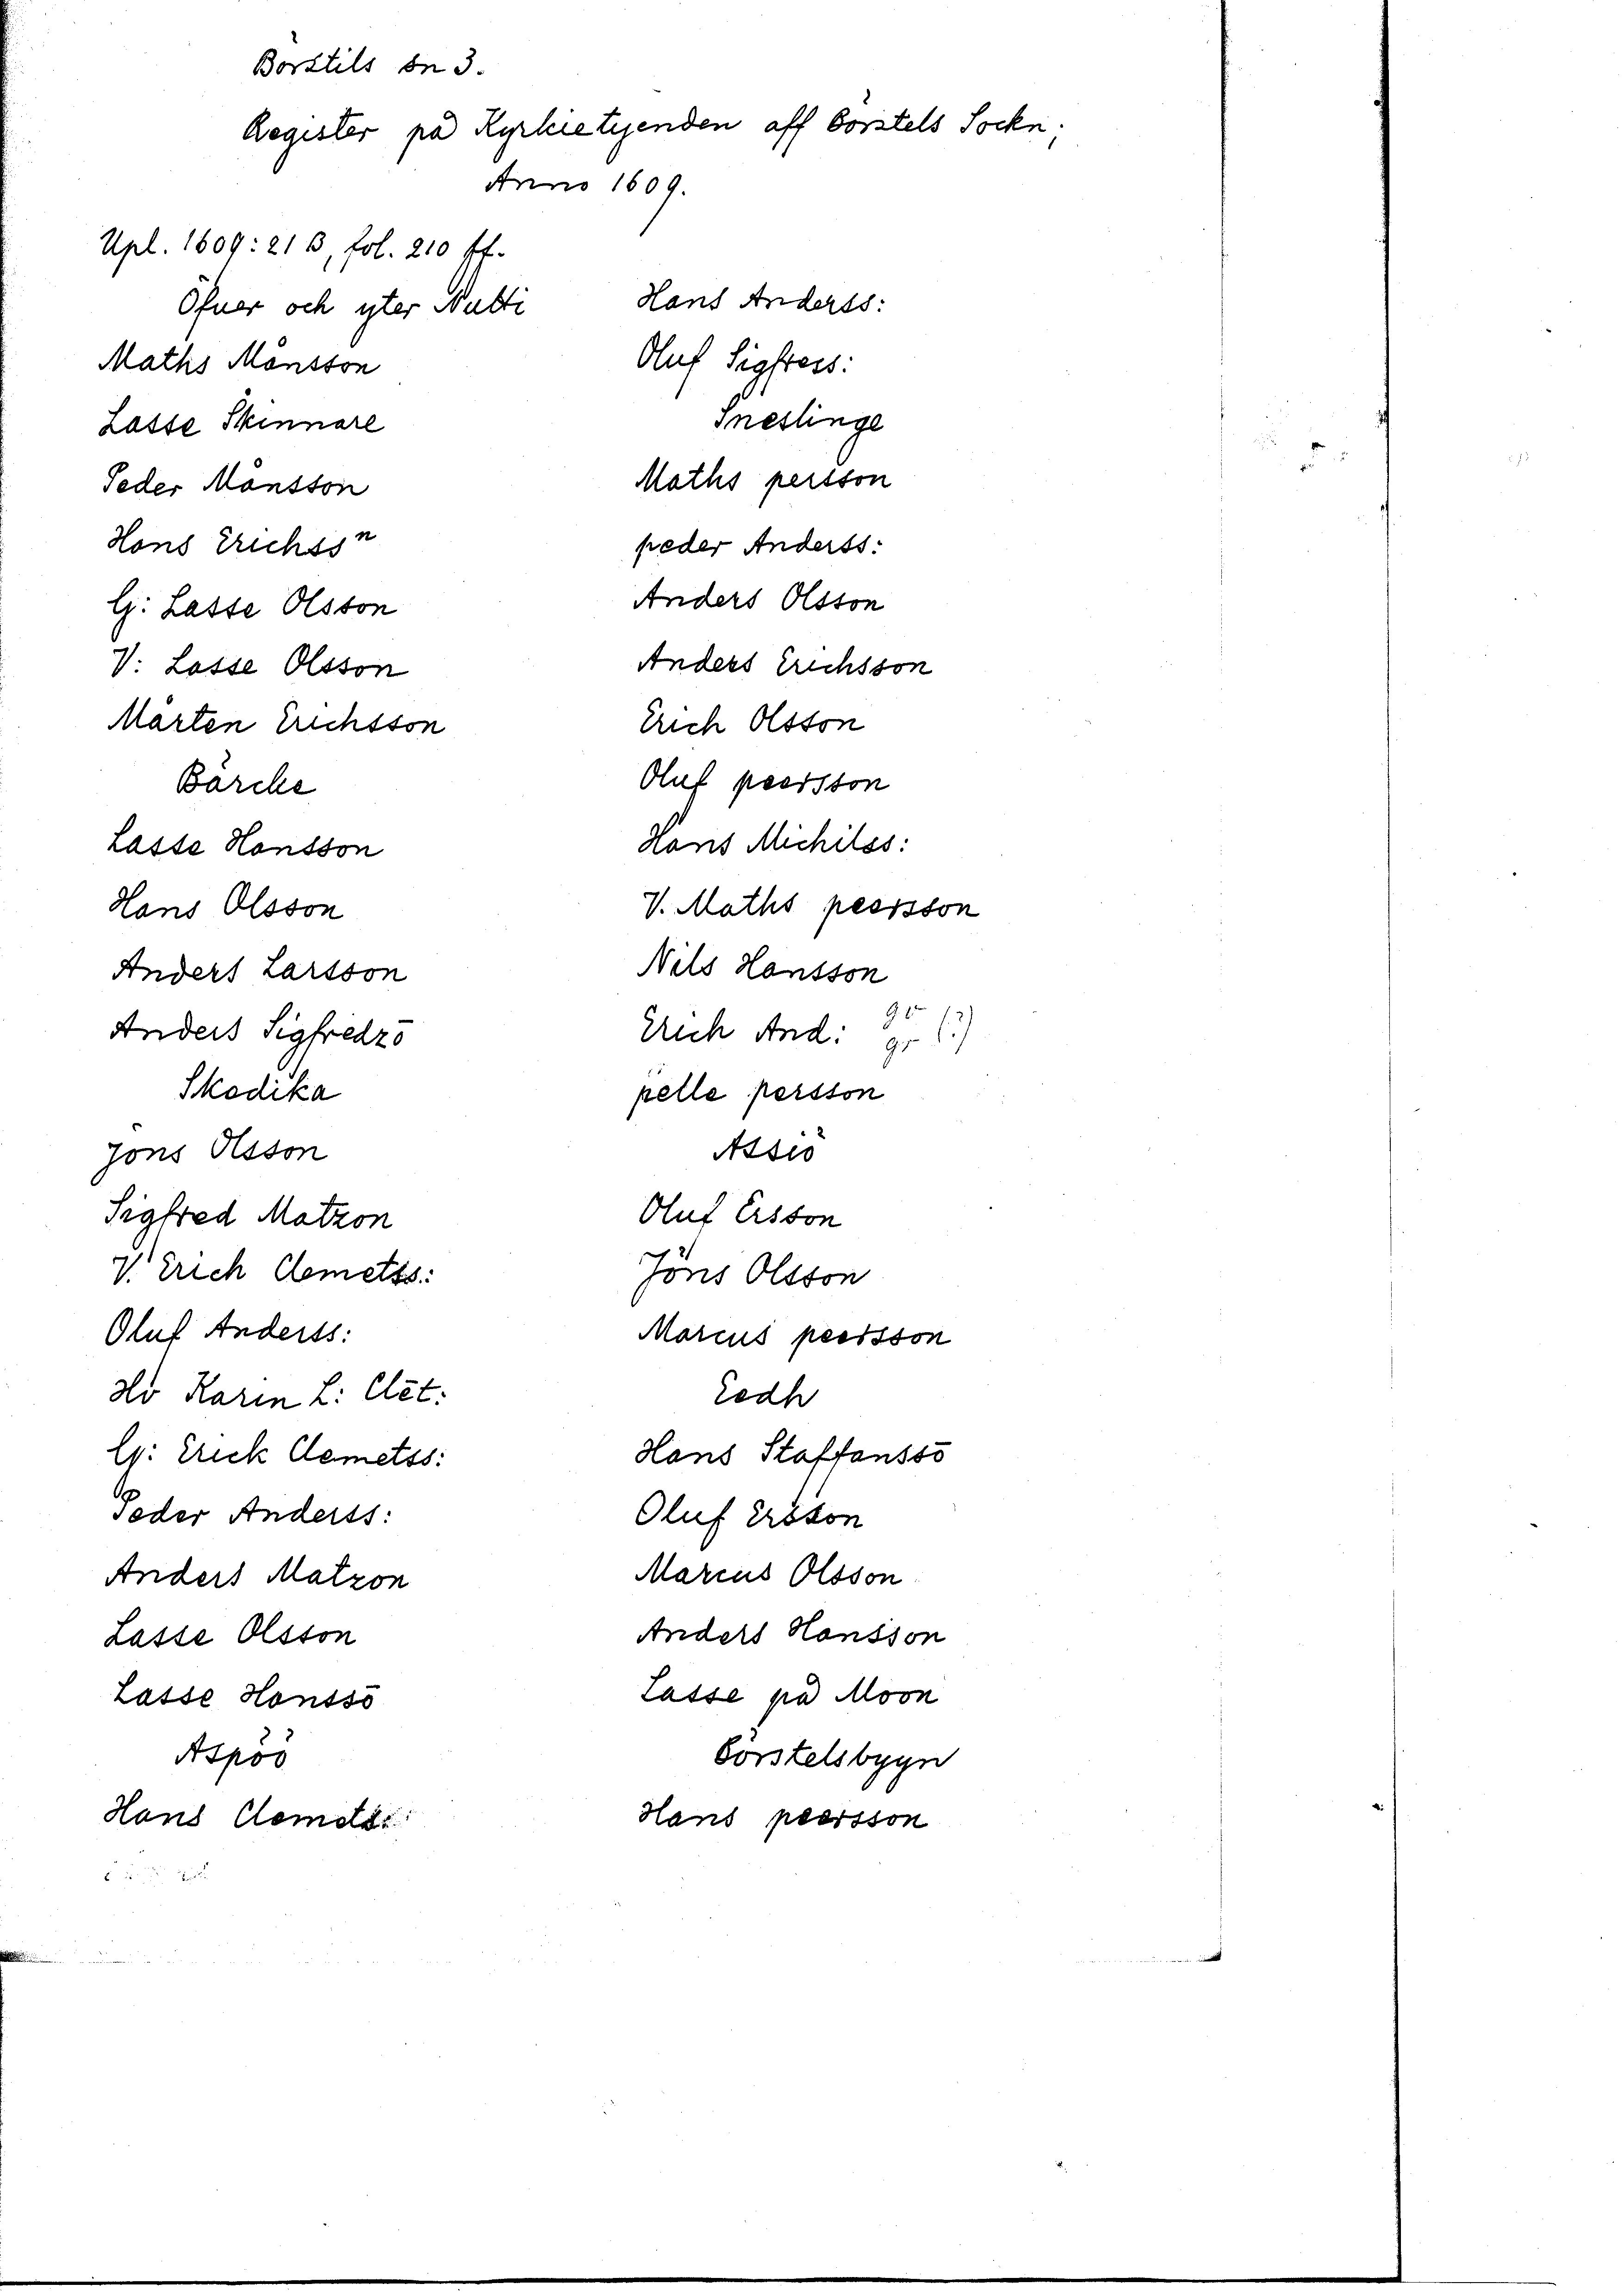 Börstils sn 3.
Register på Kyrkietijenden aff Börstels Sockn;
Anno 1609.
Upl. 1609: 21 B, fol. 210 ff.
Öfuer och yter Nutti
Maths Månsson
Lasse Skinnare
Peder Månsson
Hans Erichssn
G: Lasse Olsson
V: Lasse Olsson
Mårten Erichsson
Bärcke
Lasse Hansson
Hans Olsson
Anders Larsson
Anders Sigfredzō
Skedika
Jöns Olsson
Sigfred Matzon
V. Erich Clemetss:
Oluf Anderss:
Hō Karin L: Clēt:
G: Erick Clemetss:
Peder Anderss:
Anders Matzon
Lasse Olsson
Lasse Hanssō
Aspöö
Hans Clemetss:
Hans Anderss:
Oluf Sigfress:
Sneslinge
Maths persson
peder Anderss:
Anders Olsson
Anders Erichsson
Erich Olsson
Oluf peersson
Hans Michilss:
V. Maths peersson
Nils Hansson
Erich And: gr (?)
pelle persson
Assiö
Oluf Ersson
Jöns Olsson
Marcus peersson
Eedh
Hans Staffanssō
Oluf Ersson
Marcus Olsson
Anders Hansson
Lasse på Moon
Börstelsbyyn
Hans peersson